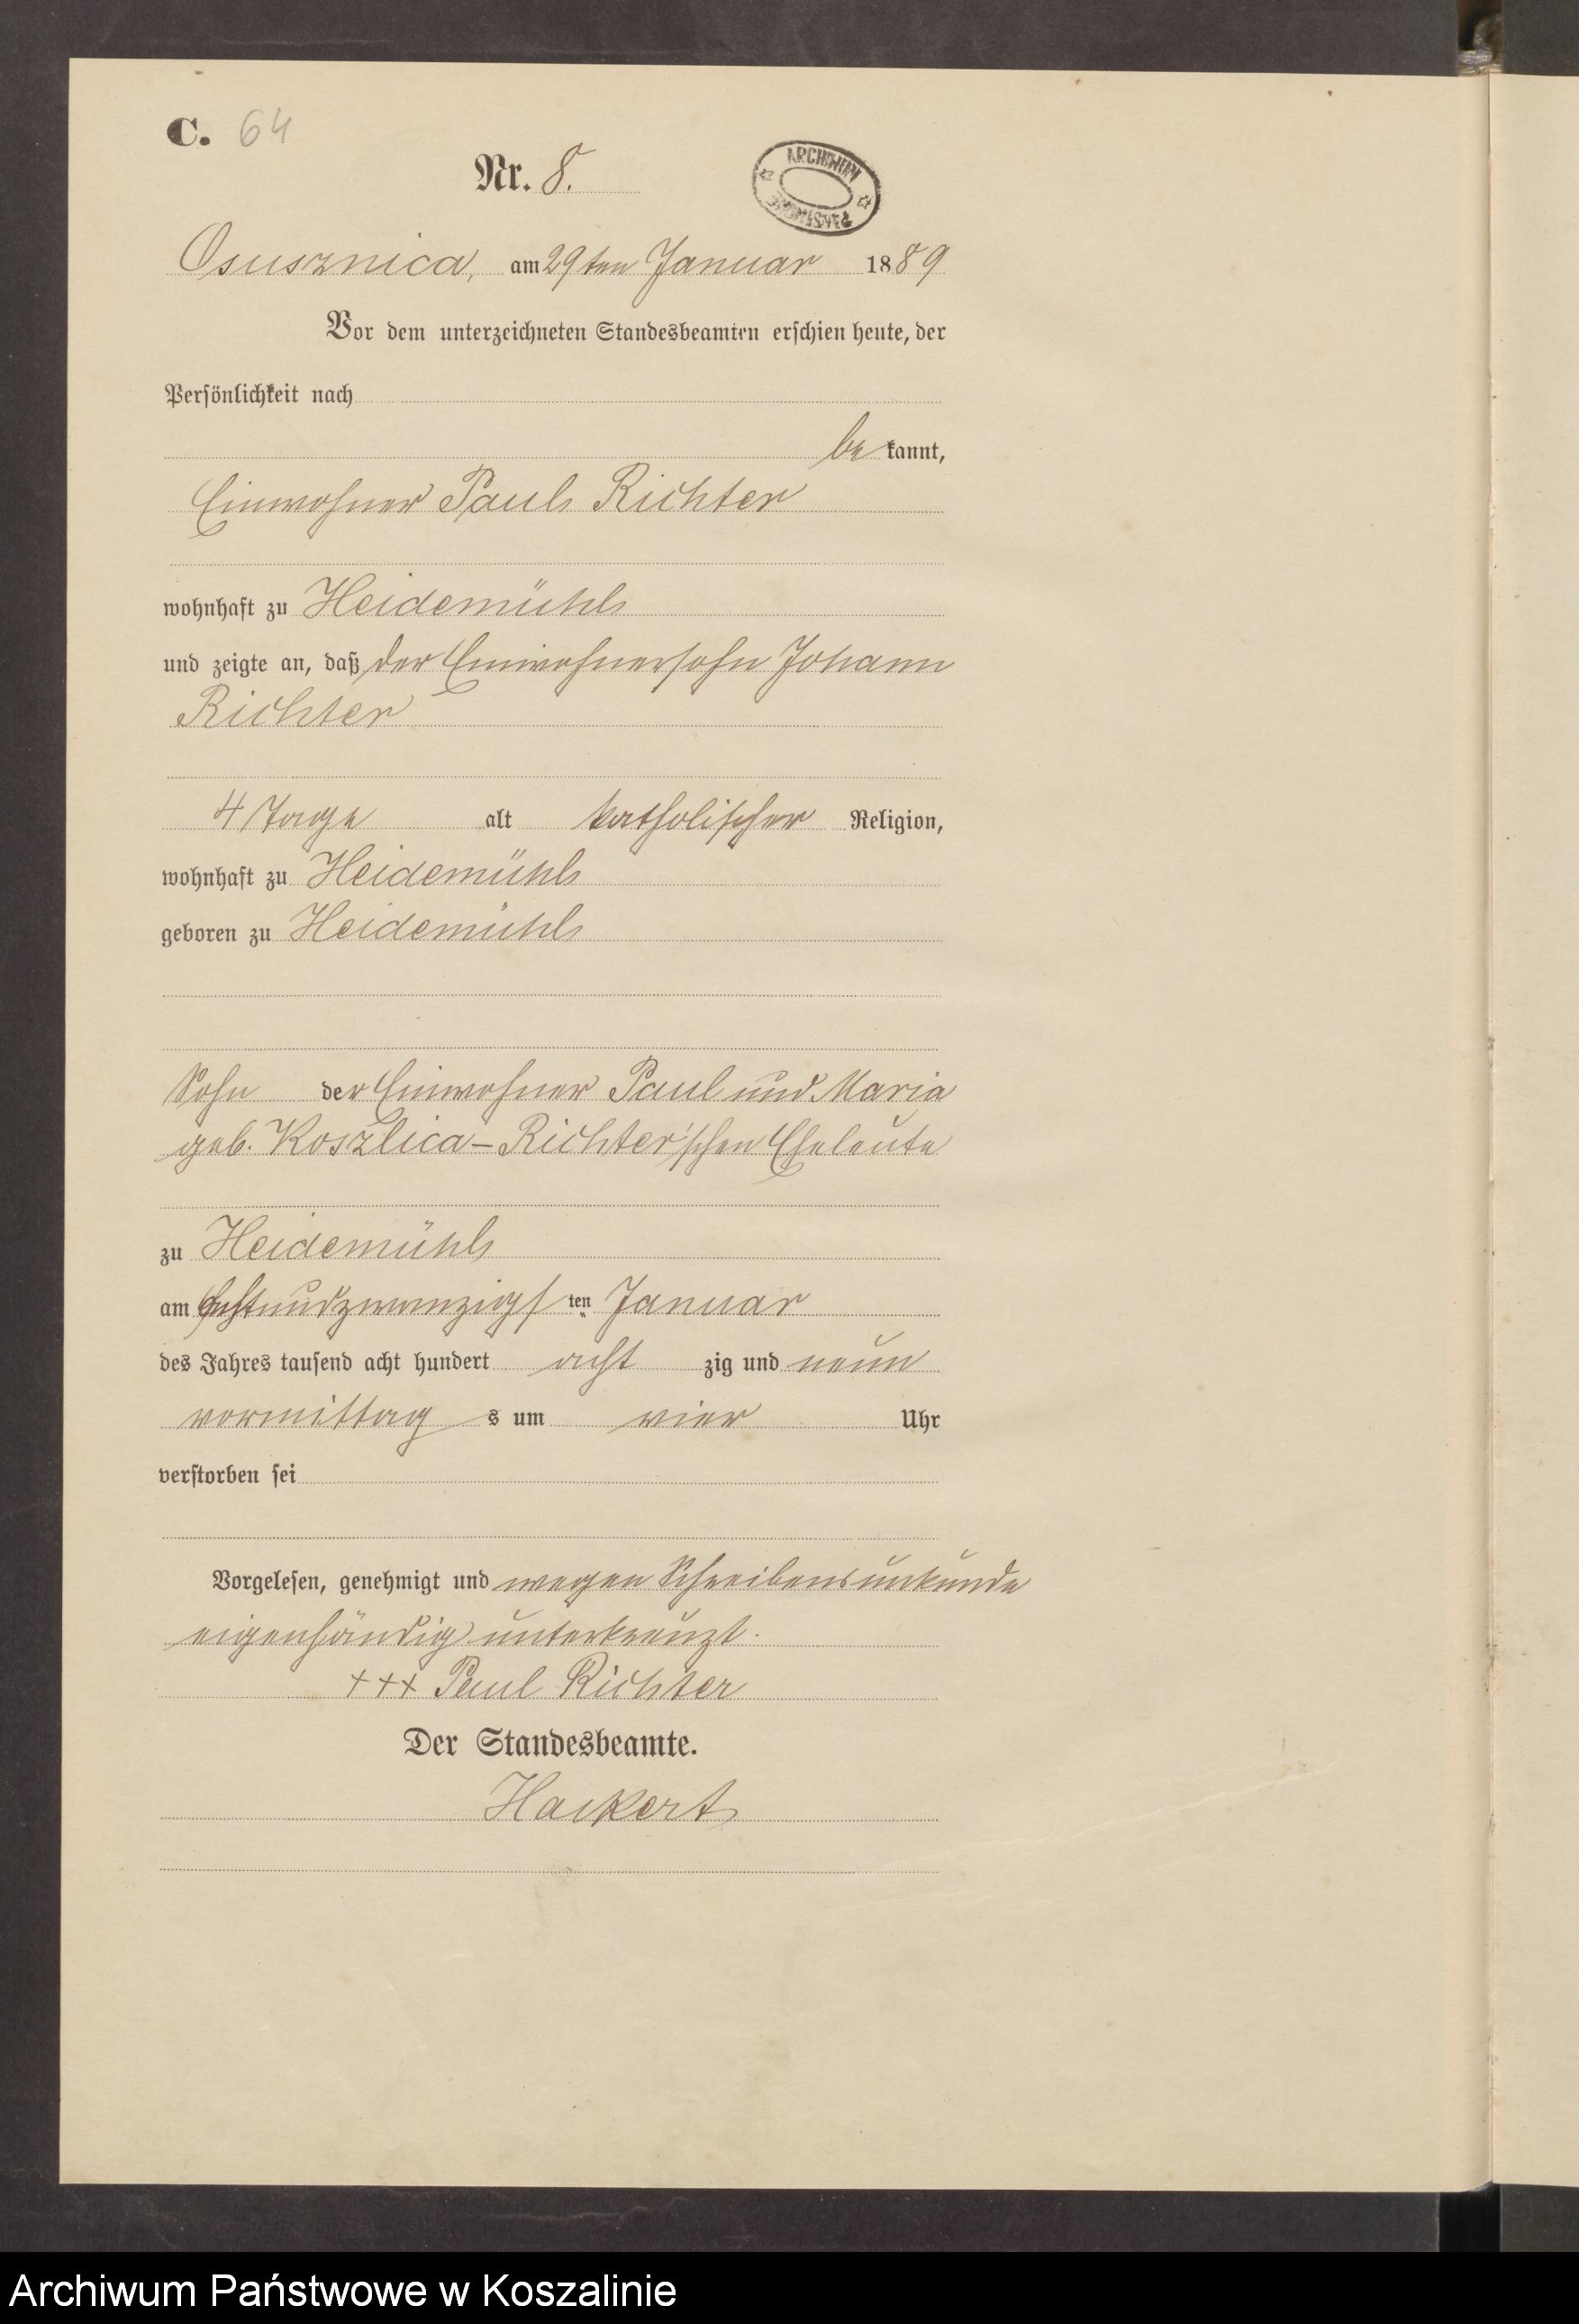 C. 64
Nr. 8.
ARCHIWUM PAŃSTWOWE
Osusznica, am 29ten Januar 1889
Vor dem unterzeichneten Standesbeamten erschien heute, der
Persönlichkeit nach
be kannt,
Einwohner Paul Richter
wohnhaft zu Heidemühl
und zeigte an, daß der Einwohnersohn Johann
Richter
4 Tage alt katholischer Religion,
wohnhaft zu Heidemühl
geboren zu Heidemühl
Sohn der Einwohner Paul und Maria
geb. Koszlica-Richter'schen Eheleute
zu Heidemühl
am achtundzwanzigsten Januar
des Jahres tausend acht hundert acht zig und neun
vormittag s um vier Uhr
verstorben sei
Vorgelesen, genehmigt und wegen Schreibensunkunde
eigenhändig unterkreuzt.
+++ Paul Richter
Der Standesbeamte.
Hackert
Archiwum Państwowe w Koszalinie